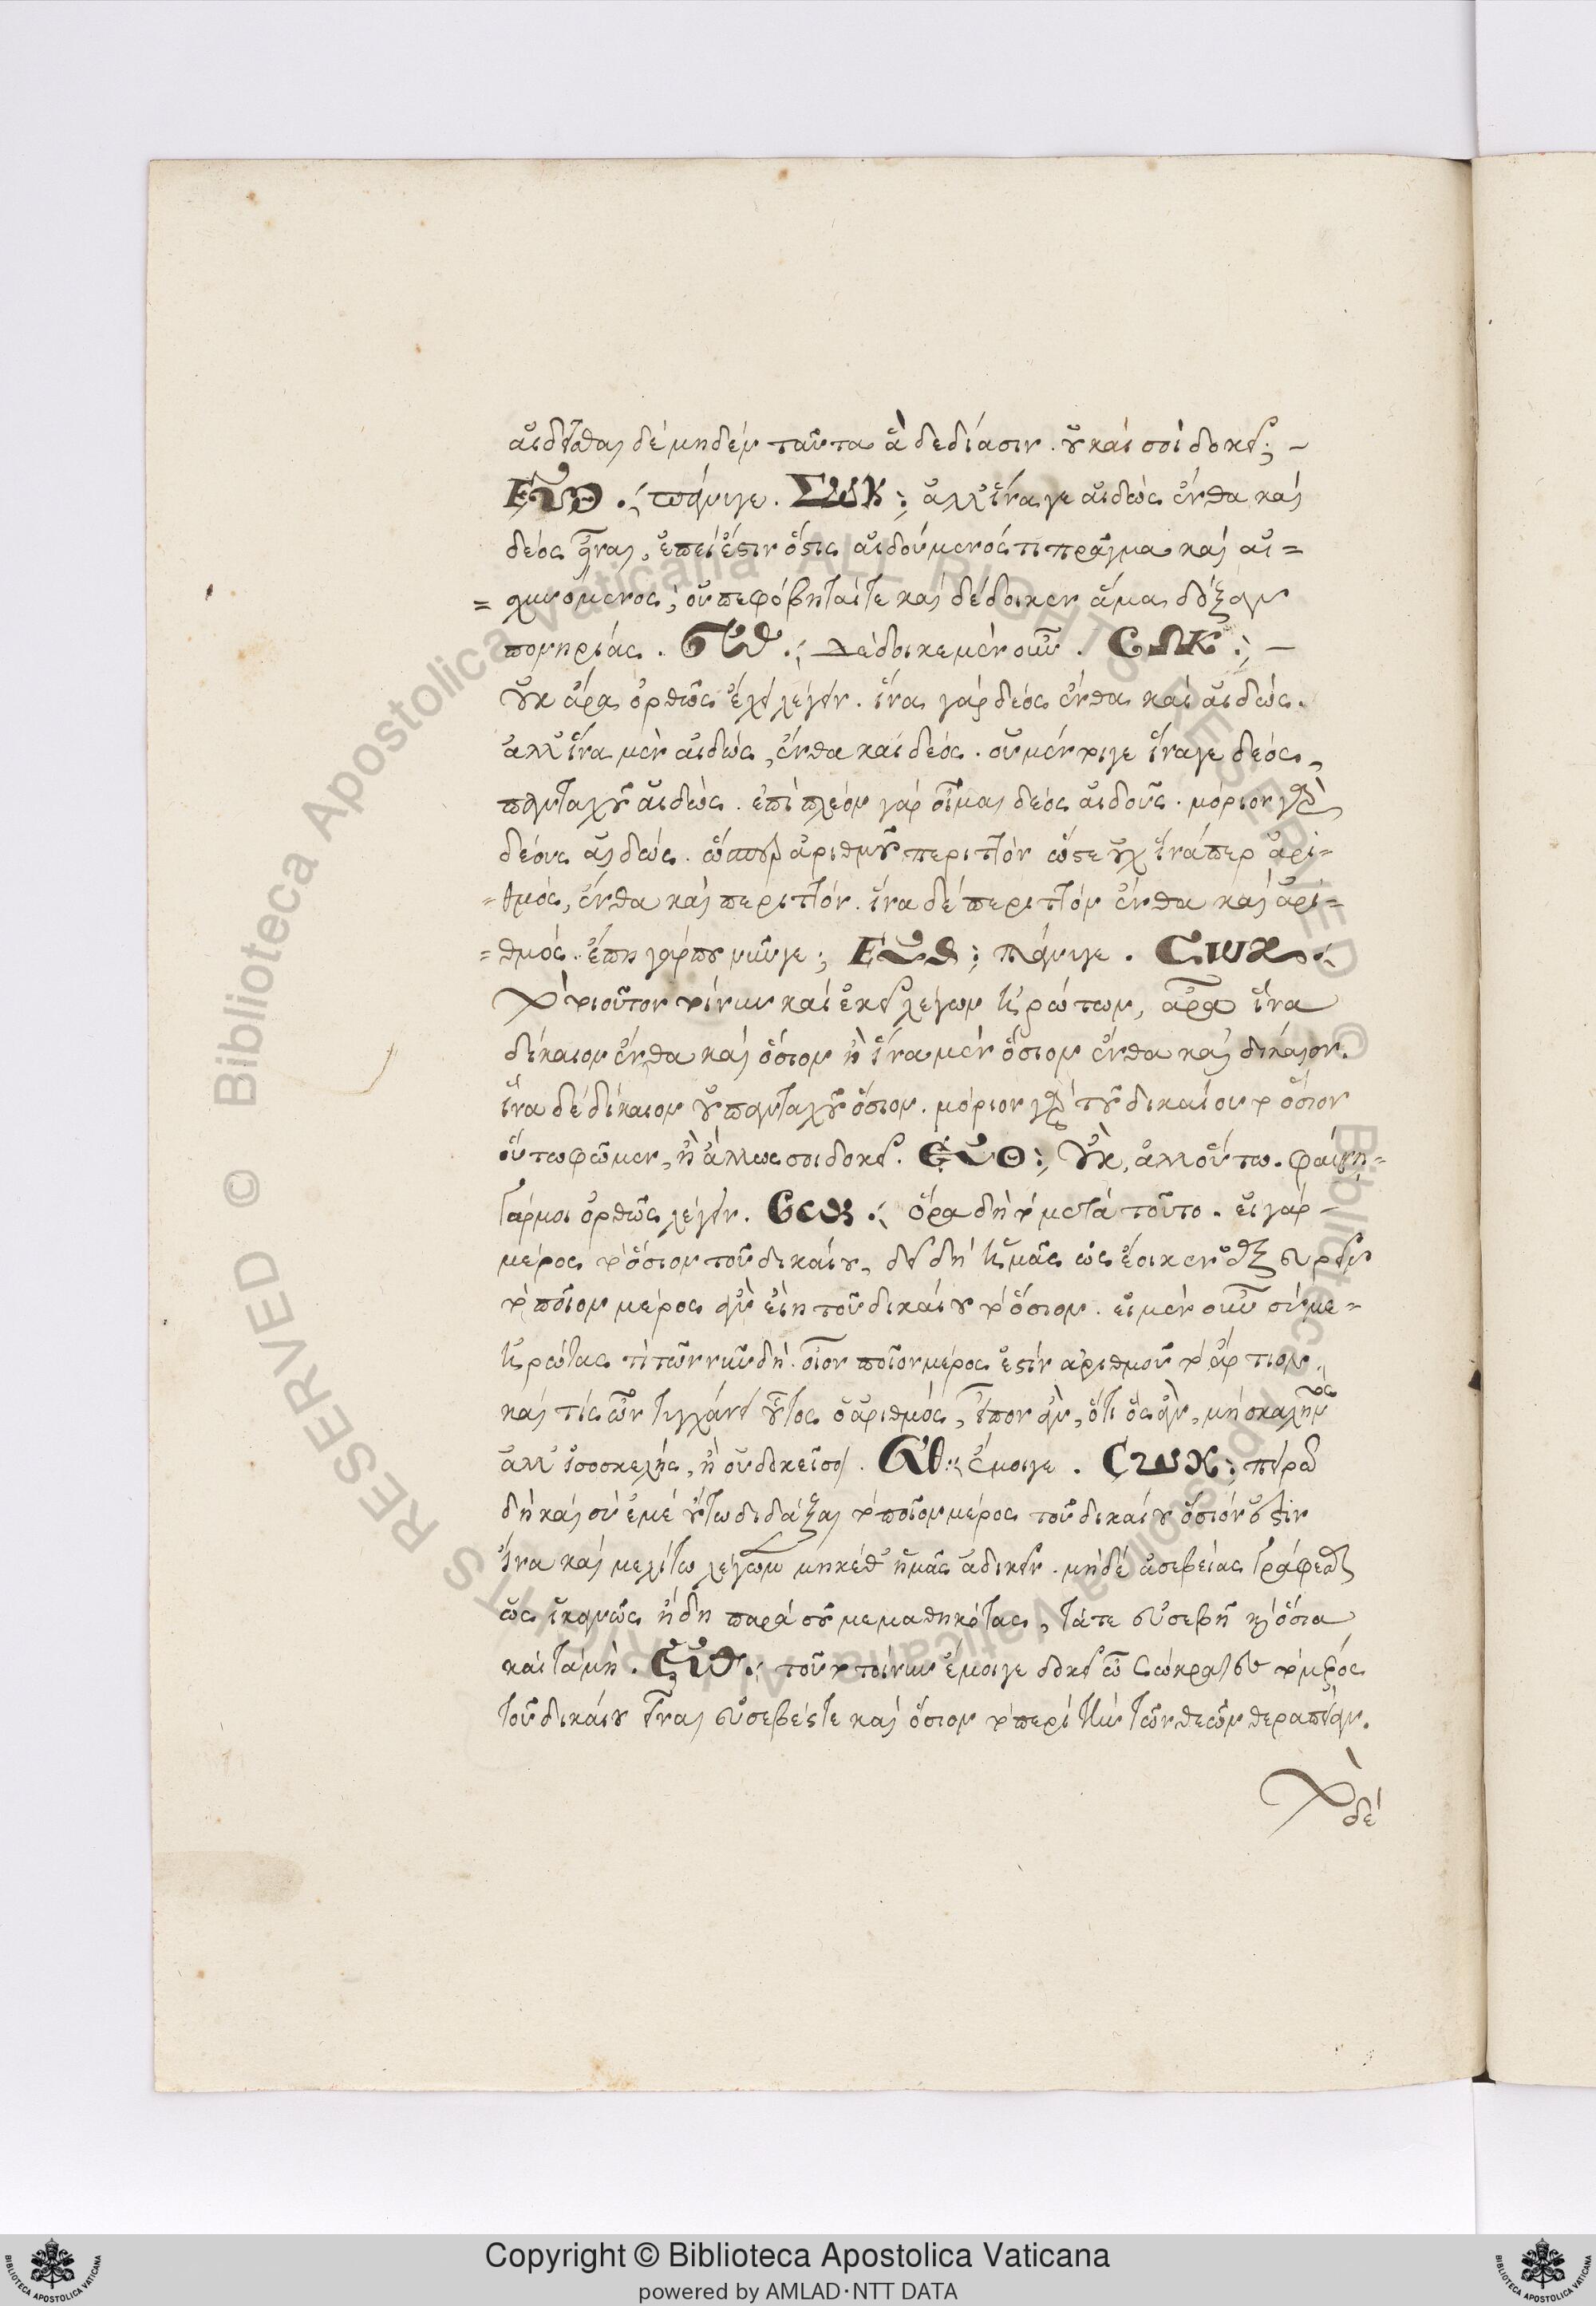 αἰδεῖσθαι δὲ μηδὲν ταῦτα ἃ δεδίασιν. οὐ καὶ σοὶ δοκεῖ; –
ΕΥΘ. πάνυ γε. ΣΩΚ: ἀλλ' ἵνα γε αἰδὼς ἔνθα καὶ
δέος εἶναι, ἐπεὶ ἔστιν ὅστις αἰδούμενός τι πρᾶγμα καὶ αἰ=
=χυνόμενος, οὐ πεφόβηταί τε καὶ δέδοικεν ἅμα δόξαν
πονηρίας. ΕΥΘ. Δέδοικε μὲν οὖν. ΣΩΚ: –
Οὐκ ἄρα ὀρθῶς ἔχει λέγειν. ἵνα γὰρ δέος ἔνθα καὶ αἰδώς.
ἀλλ' ἵνα μὲν αἰδώς, ἔνθα καὶ δέος. οὐ μέντοι γε ἵνα γε δέος,
πανταχοῦ αἰδώς. ἐπὶ πλέον γὰρ οἶμαι δέος αἰδοῦς. μόριον γὰρ
δέους αἰδώς. ὥσπερ ἀριθμοῦ περιττὸν ὥστε οὐχ ἵνα περ ἀρι=
=θμός, ἔνθα καὶ περιττόν. ἵνα δὲ περιττὸν ἔνθα καὶ ἀρι=
=θμός. ἕπῃ γάρ που νῦν γε; ΕΥΘ: πάνυ γε. ΣΩΚ:
Τὸ τοιοῦτον τοίνυν καὶ ἐκεῖ λέγων ἠρώτων, ἆρα ἵνα
δίκαιον ἔνθα καὶ ὅσιον ἢ ἵνα μὲν ὅσιον ἔνθα καὶ δίκαιον.
ἵνα δὲ δίκαιον οὐ πανταχοῦ ὅσιον. μόριον γὰρ τοῦ δικαίου τὸ ὅσιον
οὕτω φῶμεν, ἢ ἄλλως σοι δοκεῖ. ΕΥΘ: Οὐκ, ἀλλ' οὕτω. φαίνῃ=
γάρ μοι ὀρθῶς λέγειν. ὅρα δὴ τὸ μετὰ τοῦτο. εἰ γὰρ –
μέρος τὸ ὅσιον τοῦ δικαίου, δεῖ δὴ ἡμᾶς ὡς ἔοικεν ἐξευρεῖν
τὸ ποῖον μέρος ἂν εἴη τοῦ δικαίου τὸ ὅσιον. εἰ μὲν οὖν σύ με=
ἠρώτας τὶ τῶν νῦν δή. οἷον ποῖον μέρος ἐστὶν ἀριθμοῦ τὸ ἄρτιον,
καὶ τίς ὢν τυγχάνει οὗτος ὁ ἀριθμός, εἶπον ἄν, ὅτι ὃς ἂν, μὴ σκαληνὸς
ἀλλ' ἰσοσκελής, ἢ οὐ δοκεῖ σοι. ΕΥΘ: ἔμοιγε. ΣΩΚ: πειρῶ
δὴ καὶ σὺ ἐμὲ οὕτω διδάξαι τὸ ποῖον μέρος τοῦ δικαίου ὅσιόν ἐστιν
ἵνα καὶ μελίτω λέγωμεν μηκέθ' ἡμᾶς ἀδικεῖν. μηδὲ ἀσεβείας γράφεσθαι
ὡς ἱκανῶς ἤδη παρὰ σοῦ μεμαθηκότας, τά τε εὐσεβῆ καὶ ὅσια
καὶ τὰ μή. ΕΥΘ: τοῦτο τοίνυν ἔμοιγε δοκεῖ ὦ Σώκρατες τὸ μέρος
τοῦ δικαίου εἶναι εὐσεβές τε καὶ ὅσιον τὸ περὶ τὴν τῶν θεῶν θεραπείαν.
Τὸ δὲ